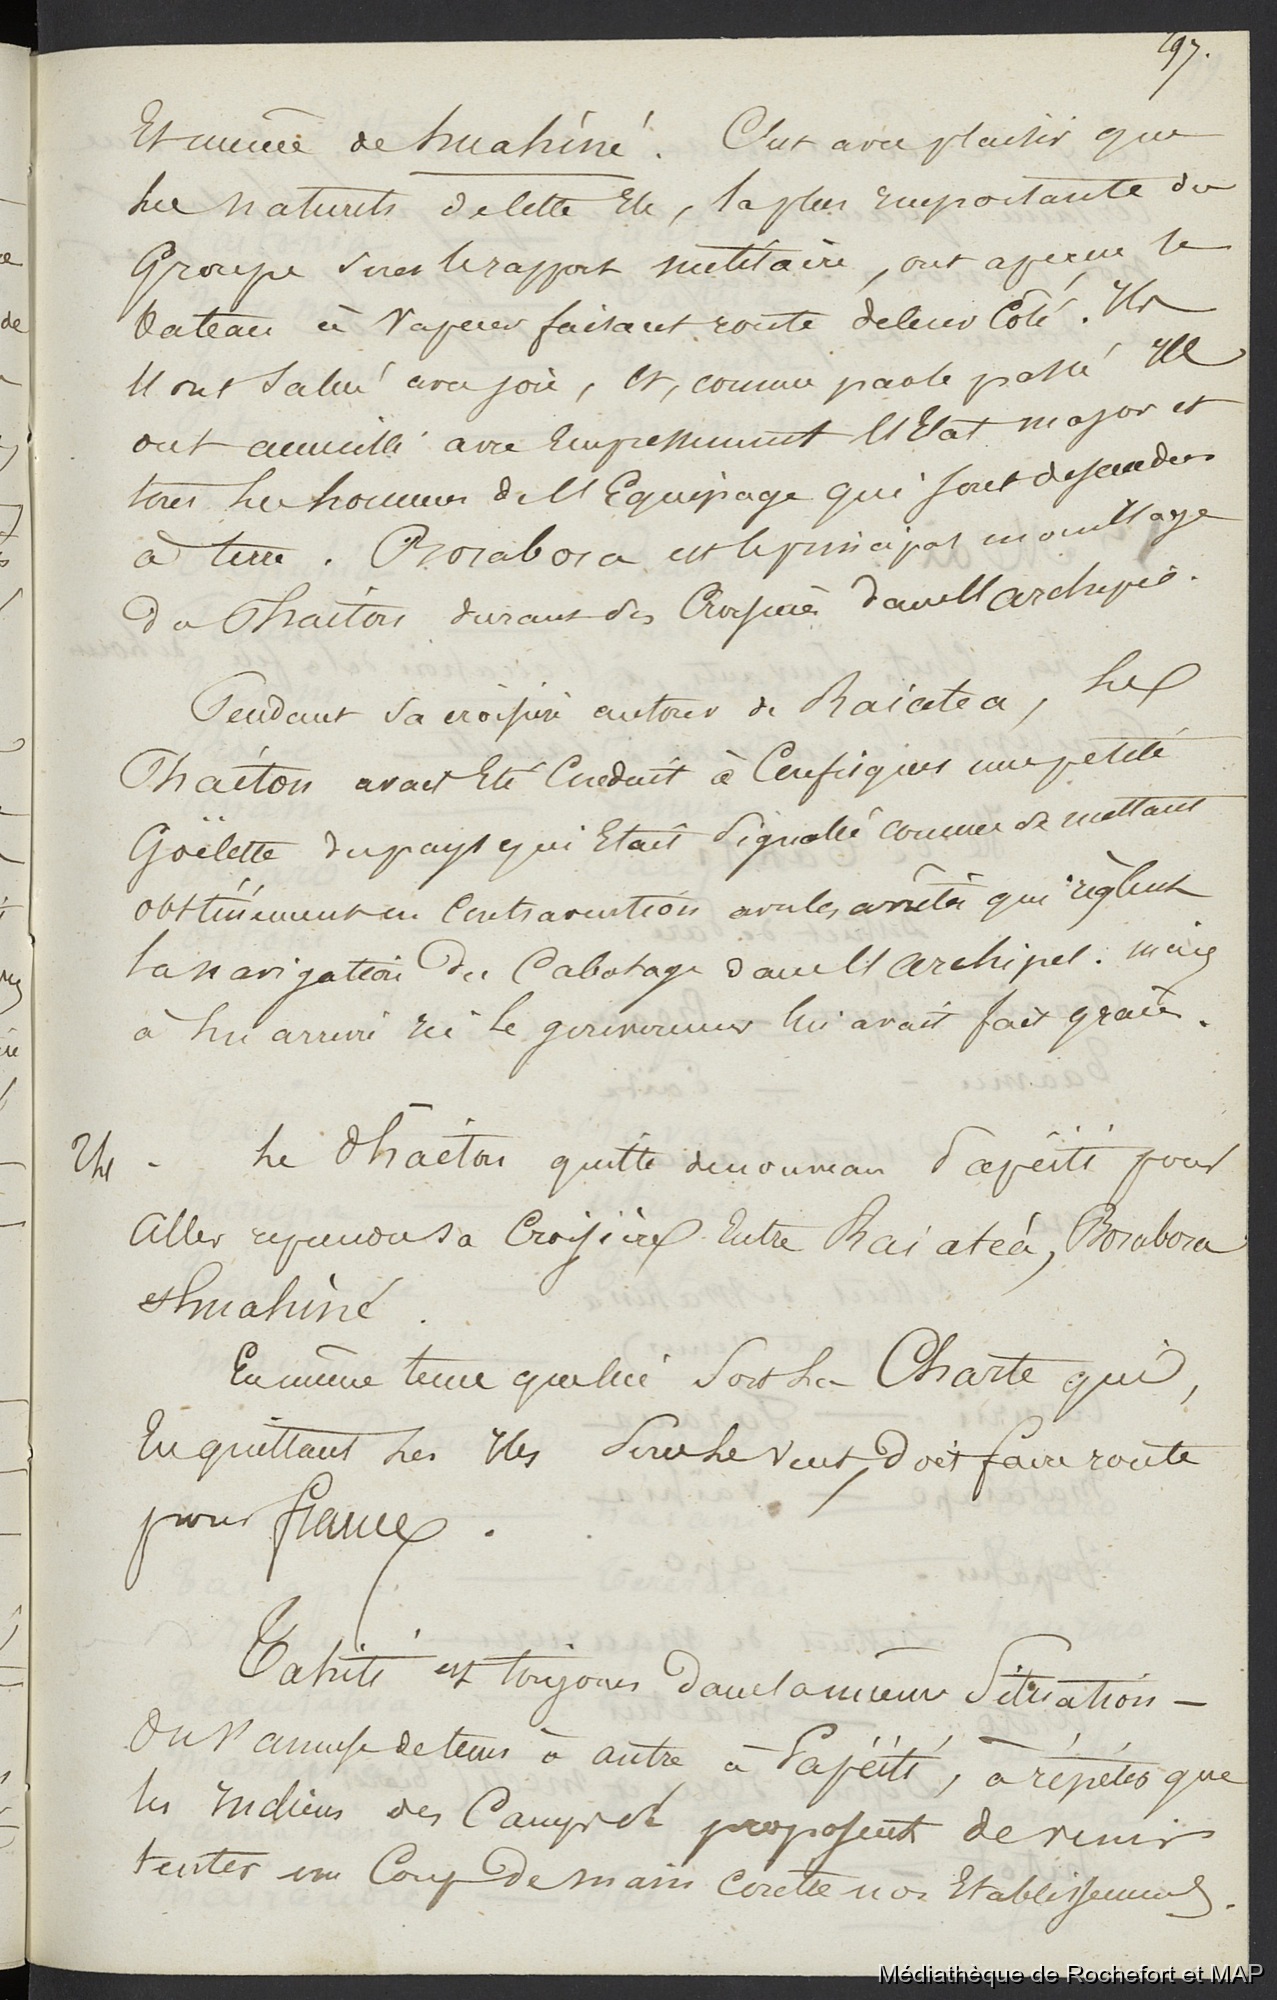 197.
Et même de huahiné. C'est avec plaisir que
les naturels de cette Ile, la plus importante du
Groupe sous le rapport militaire, ont aperçu le
bateau à vapeur faisant route de leur Côté. Ils
l'ont salué avec joie, et, comme par le passé Ils
ont accueilli avec Empressement l'Etat major et
tous les hommes de l'Equipage qui sont descendus
à terre. Borabora est le principal mouillage
du Phaéton durant ses Croisières dans l'archipel.
Pendant sa croisière autour de Raiatea, Le
Phaéton avait Eté Conduit à Confisquer une petite
Goëlette du pays qui Etait signalée comme se mettant
obstinément en Contravention avec les arrêtés qui règlent
la navigation du Cabotage dans l'archipel. mais
à son arrivée ici le gouverneur lui avait fait grâce.
24 - Le Phaéton quitte de nouveau Papéïti pour
Aller reprendre sa Croisière Entre Raiatéa, Borabora
et huahiné.
En même tems que lui sort La Charte qui,
En quittant les Iles Sous le Vent, doit faire route
pour france.
Tahiti est toujours dans la même Situation -
On s'amuse de tems à autre à Papéïti, à répéter que
les Indiens des Camps se proposent de venir
tenter un Coup de main contre nos Etablissements.
Médiathèque de Rochefort et MAP